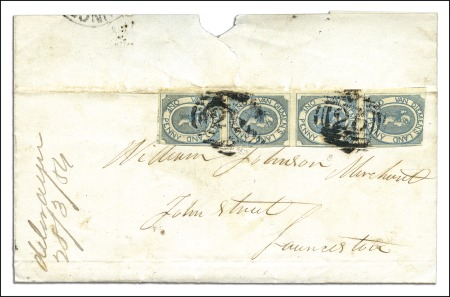 VAN DIEMEN'S LAND ONE PENNY
VAN DIEMEN'S LAND ONE PENNY
VAN DIEMEN'S LAND ONE PENNY
VAN DIEMEN'S LAND ONE PENNY
William Johnson Merchant
John Street
Launceston
Deloraine
30/3/54